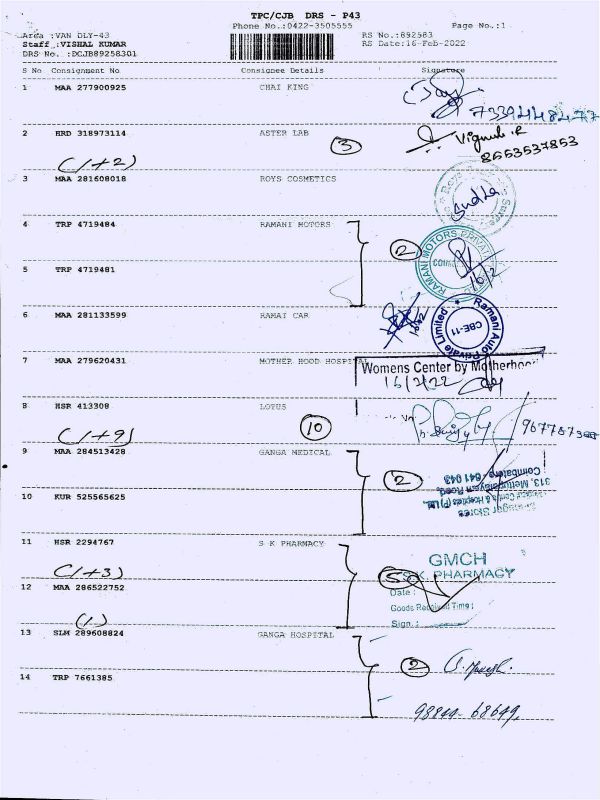 TPC/CJB DRS - P43
Phone No.:0422-3505555 Page No.:1
Area :VAN DLY-43 RS No.:892583
Staff :VISHAL KUMAR RS Date:16-Feb-2022
DRS No. :DCJB89258301
S No Consignment No Consignee Details Signature
1 MAA 277900925 CHAI KING
7339448477
2 HRD 318973114 ASTER LAB 3 Vignesh.R
(1+2) 8653537853
3 MAA 281608018 ROYS COSMETICS Sudha
4 TRP 4719484 RAMANI MOTORS 2
RAMANI MOTORS PRIVATE
5 TRP 4719481
6 MAA 281133599 RAMAI CAR
Ramani Auto Private Limited
CBE-11
7 MAA 279620431 MOTHER HOOD HOSPITAL
Womens Center by Motherhood
16/2/22
8 HSR 413308 LOTUS 10
(1+9)
9 MAA 284513428 GANGA MEDICAL 2
313, Mettupalayam Road,
Coimbatore 641 043
10 KUR 525565625
11 HSR 2294767 S K PHARMACY
(1+3) GMCH
5 S.K. PHARMACY
12 MAA 286522752 Date :
Goods Received Time :
(1) Sign. :
13 SLM 289608824 GANGA HOSPITAL
2
14 TRP 7661385
98844-68649